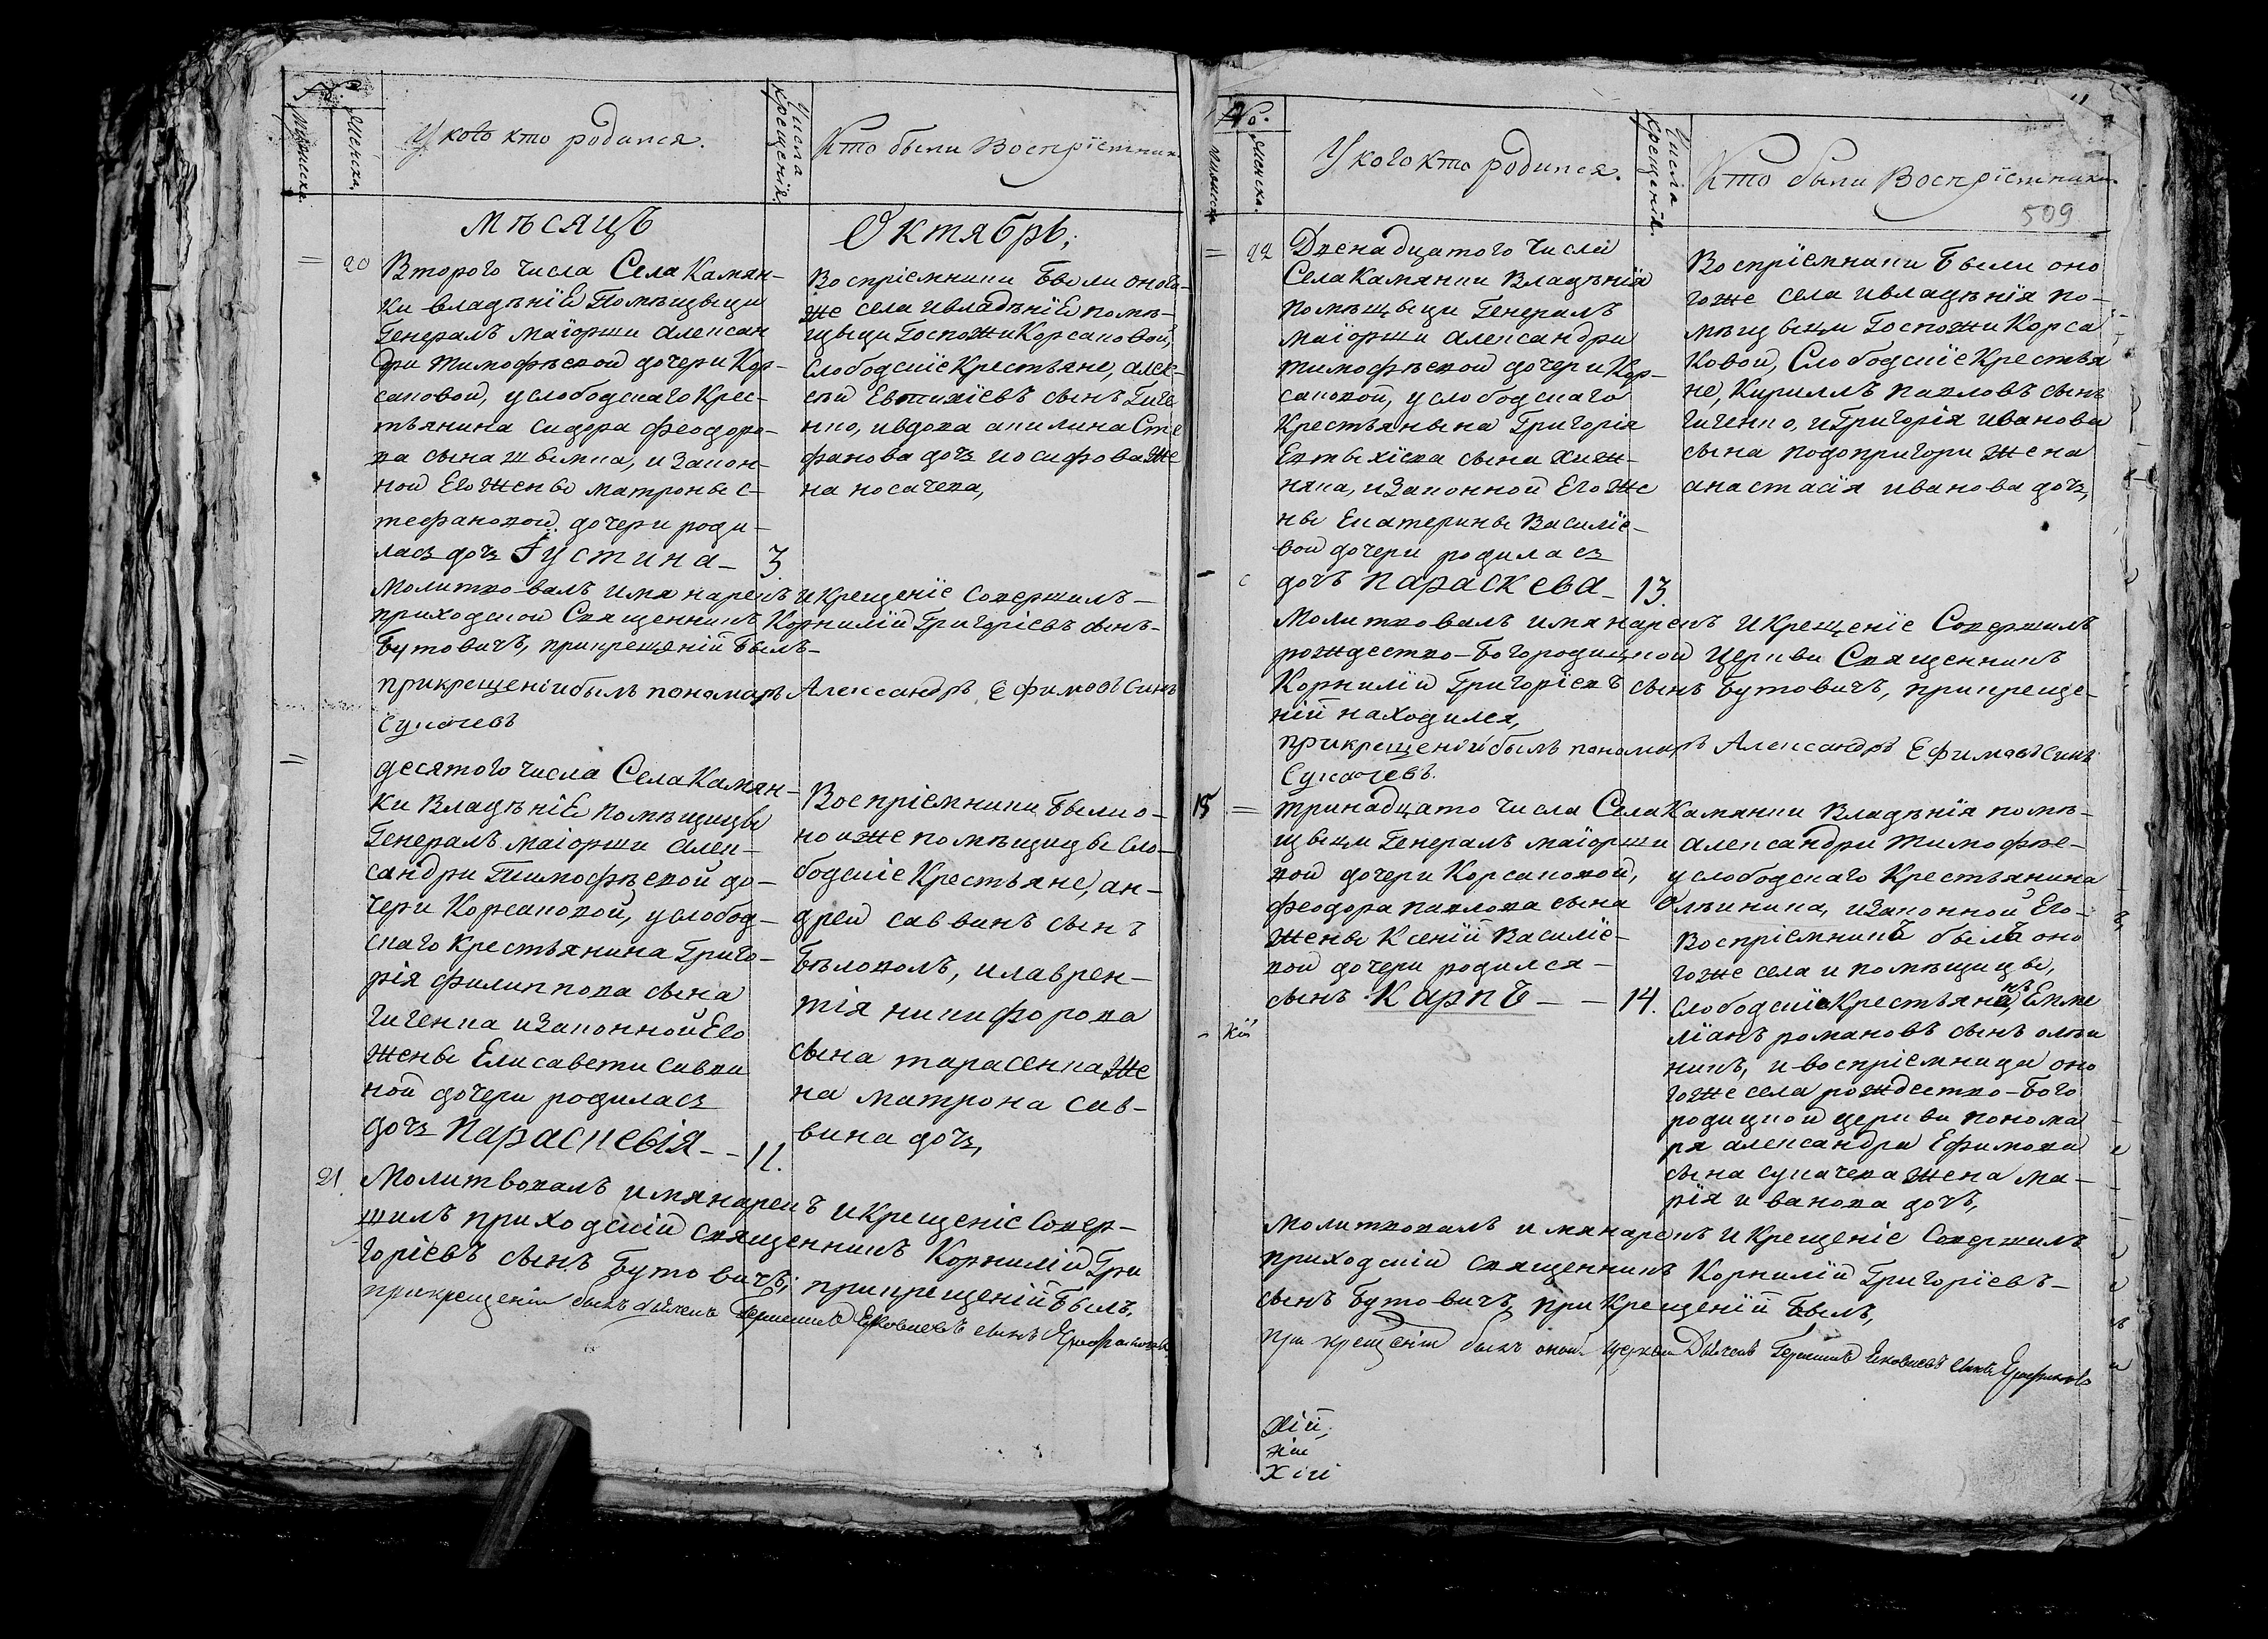 No
Мужеска.
Женска.
У кого кто родился.
Числа
Крещенія.
Кто были Воспріемники
мѣсяцъ
20 Второго числа Села Камян-
ки владѣніЕ Помѣщыци
Генералъ маіорши алексан
дри тимофѣевой дочери Кор-
саковой, услободскаго Крес-
тьянина сидора феодоро-
ва сына швыдка, и Закон-
ной Его жены матроны с-
тефановой дочери роди-
лась дочь Іустина- 3
Октябрь;
Воспріемники Были оного-
же села ивладѣніЕ помѣ-
щыци Госпожи Корсаковой,
слободскіе Крестьяне, алек-
сѣй Евтихіевъ сынъ Гиге
нко, ивдова акилина Сте
фанова дочь иосифова же
на носачева,
молитвовалъ имя нарекъ и Крещеніе Совершилъ-
приходской Священникъ Корнилій Григоріевъ сынъ-
Бутовичъ, прикрещеніи Былъ-
прикрещеніи былъ пономарь Александръ Ефимовъ Синъ
Сукачевъ
десятого числа Села Камян-
ки ВладѣніЕ помѣщицы
Генералъ маіорши Алек-
сандри Тимофѣевой до-
чери Корсаковой, услобод-
скаго Крестьянина Григо-
рія филиппова сына
гигенка и Законной Его
жены Елисавети Савви
ной дочери родилась
дочь Параскевія-- 11.
Воспріемники Были о-
ной же помѣщицы сло-
бодскіе Крестьяне, ан-
дрей саввинъ сынъ
Бѣловолъ, илаврен-
тія никифорова
сына тарасенка же
на матрона сав-
вина дочь,
21. Молитвовалъ имя нарекъ и Крещеніе Совер-
шилъ приходскій священникъ Корнилій Гри
горіевъ сынъ Бутовичъ; прикрещеніи Былъ,
прикрещеніи былъ дьячекъ сынъ
No.
Мужеска
Женска.
У кого кто родился.
Числа
Крещенія.
Кто были Воспріемники
509
22 Двенадцатого числа
Села Камянки Владѣнія
помѣщыци Генералъ
маіорши александри
тимофѣевой дочери Кор-
саковой, услободскаго
Крестьянына Григорія
Евтыхіева сына хиж-
няка, и Законной Его же
ны Екатерины Василіе-
вой дочери родилась
дочъ параскева- 13.
Воспріемники Были оно
гоже села ивладѣнія по-
мѣщыци Госпожи Корса
ковой, Слободскіе Крестья
не, Кириллъ павловъ сынъ
гигенко, и Григорія иванова
сына подопригори жена
анастасія иванова дочь,
Молитвовалъ имя нарекъ и Крещеніе Совершилъ
рождество-Богородичной Церкви Священникъ
Корнилій Григоріевъ сынъ Бутовичъ, прикреще-
ніи находился,
прикрещеніи былъ пономарь Александръ Ефимовъ Синъ
Сукачевъ.
15 тринадцато числа Села Камянки Владѣнія помѣ-
щыци Генералъ маіорши александри тимофѣе-
вой дочери Корсаковой, услободскаго Крестьянина
феодора павлова сына Олѣиника, и Законной Его-
жены Ксеніи Василіе-
вой дочери родился-
сынъ Карпъ - - 14.
Воспріемникъ былъ оно
гоже села и помѣщицы,
слободскій Крестьянинъ, Емме
ліанъ романовъ сынъ олѣи
никъ, и воспріемница оно
гоже села рождество-Бого
родицной церкви понома
ря александра Ефимова
сына сукачева жена ма-
рія иванова дочъ,
кій
Молитвовалъ имя нарекъ и Крещеніе Совершилъ
приходскій священникъ Корнилій Григоріевъ-
сынъ Бутовичъ, при Крещеніи Былъ,
при крещеніи былъ оной церкви Дьячекъ сынъ
хій,
хіи